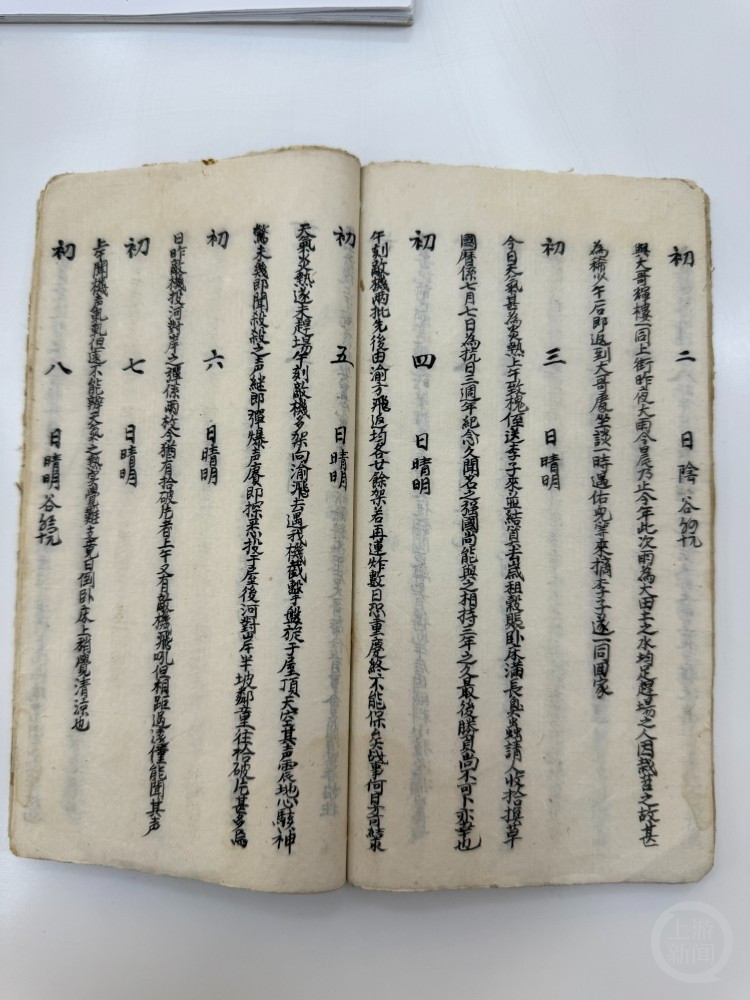 初二日陰
與大哥輝樓一同上街昨夜大雨今晨乃止今年此次雨為大田土之水均足趕場之人因栽苕之故甚
為稀少午后即返到大哥處坐談一時遇佑兒等來摘李子遂一同回家
初三日晴明
今日天氣甚為炎熱上午致槐侄送李子來並結算去歲租穀賬臥床滿長臭蟲請人收拾換草
國曆係七月七日為抗日三週年紀念久聞名之強國尚能與之相持三年之久最後勝負尚不可卜亦幸也
初四日晴明
午刻敵機兩批先後由渝方飛返均各廿餘架若再連炸數日恐重慶終不能保矣戰事何日方可結束
初五日晴明
天氣炎熱遂未趕場午刻敵機多架向渝飛去遇我機截擊盤旋于屋頂天空其声震地心駭神
驚未幾即聞殺殺之声繼即彈爆声厦即擦悉投于屋後河對岸半坡鄰童往拾破片甚多為
初六日晴明
日昨敵機投河對岸之彈係兩枚今猶有拾破片者上午又有敵機飛吼但相距過遠僅能聞其声
初七日晴明
上午聞機声軋軋但遠不能辨天氣之熱實覺難支竟日倒臥床上稍覺清涼也
初八日晴明
上游新闻